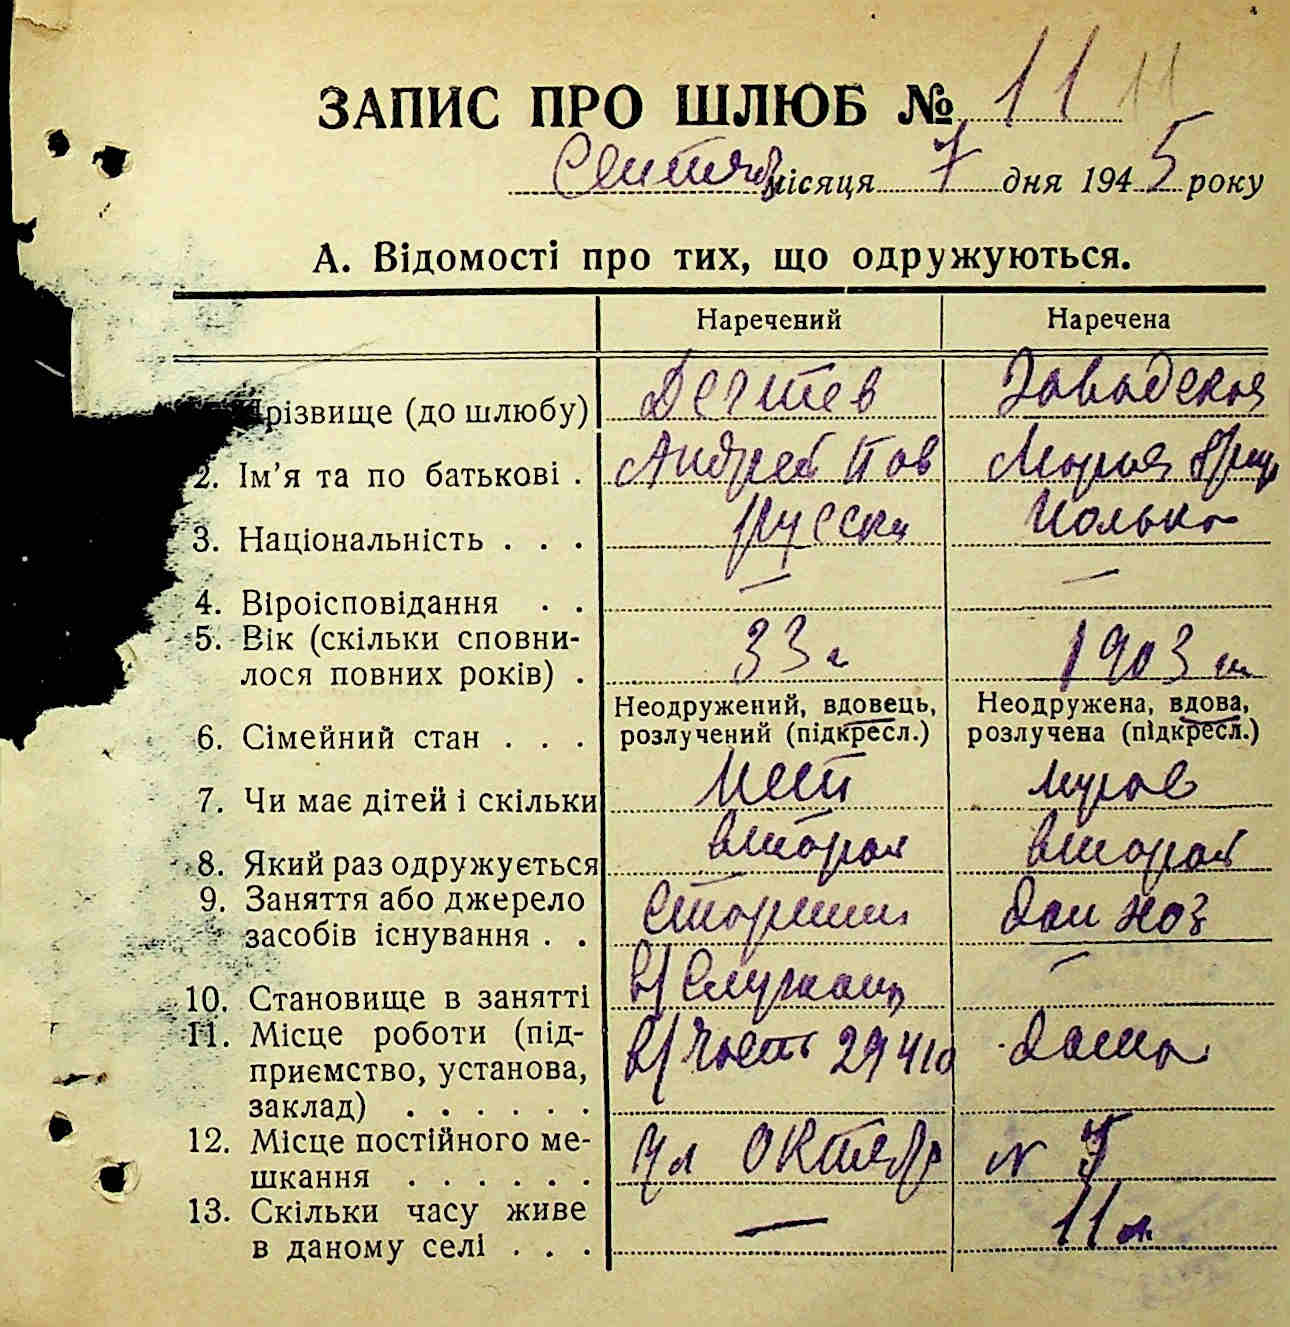 ЗАПИС ПРО ШЛЮБ № 11 11
Сентяб місяця 7 дня 1945 року
А. Відомості про тих, що одружуються.
Наречений Наречена
Прізвище (до шлюбу) Дегтев Завадская
2. Ім'я та по батькові . Андрей Пав Мария
3. Національність . . . русски Полька
4. Віроісповідання . . — —
5. Вік (скільки сповни-
лося повних років) . 33 г 1903
6. Сімейний стан . . . Неодружений, вдовець, розлучений (підкресл.) Неодружена, вдова, розлучена (підкресл.)
7. Чи має дітей і скільки Нет
8. Який раз одружується вторая вторая
9. Заняття або джерело
засобів існування . . дом хоз
10. Становище в занятті в/служащ —
11. Місце роботи (під-
приємство, установа,
заклад) . . . . . . в/часть 29410 дома
12. Місце постійного ме-
шкання . . . . . . ул Октябр N
13. Скільки часу живе
в даному селі . . . — 11 л